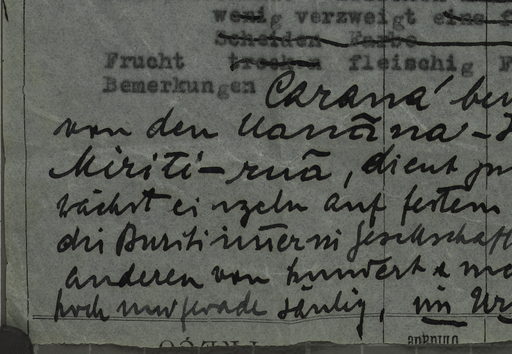 wenig verzweigt eine
Scheiden Farbe
Frucht trocken fleischig F
Bemerkungen Caraná ben
von den Uanāna-I
Miriti-ruā, dient zu
wächst einzeln auf festem
die Buriti immer in Gesellschaft
anderen von hundert u me
hoch und gerade säulig, im Ur